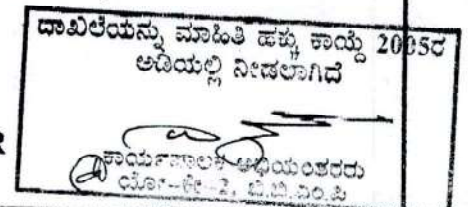 ದಾಖಲೆಯನ್ನು ಮಾಹಿತಿ ಹಕ್ಕು ಕಾಯ್ದೆ 2005ರ
ಅಡಿಯಲ್ಲಿ ನೀಡಲಾಗಿದೆ
ಕಾರ್ಯಪಾಲಕ ಅಭಿಯಂತರರು
ಬಿ.ಬಿ.ಎಂ.ಪಿ